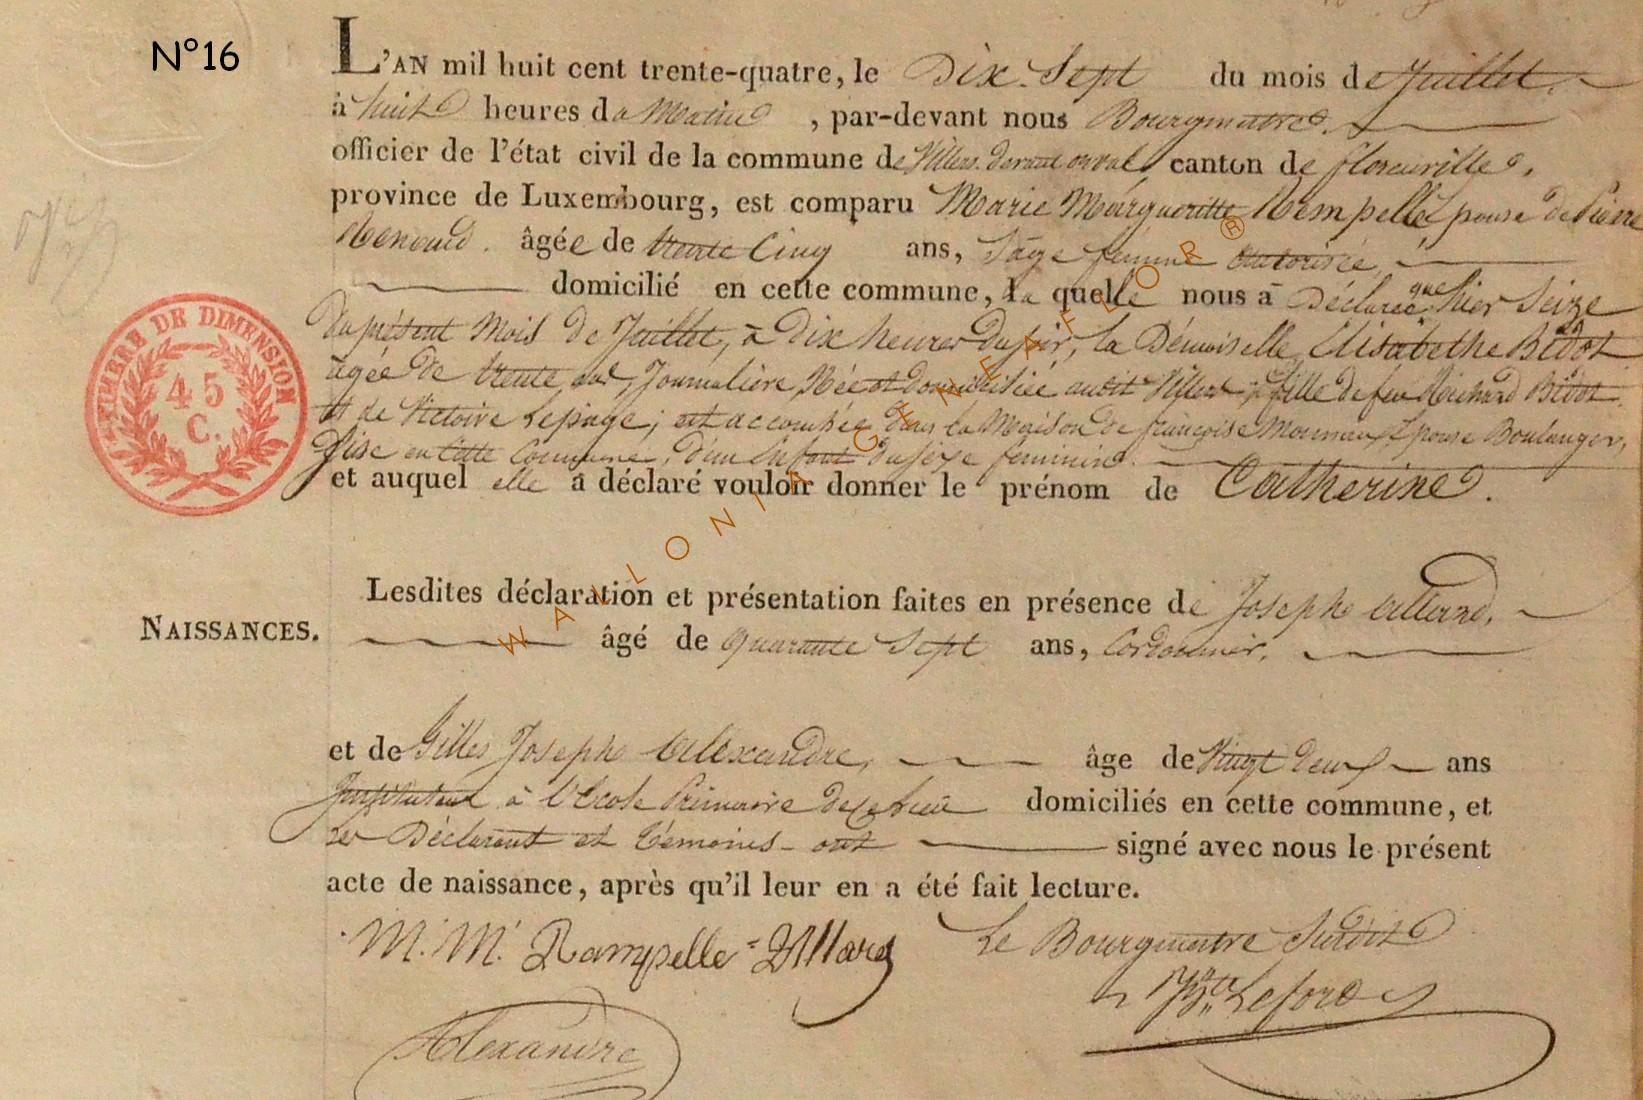 N°16
L'AN mil huit cent trente-quatre, le Dix-Sept du mois de Juillet,
à huit heures du Matin, par-devant nous Bourgmestre,
officier de l'état civil de la commune de Villers-devant orval, canton de florenville,
province de Luxembourg, est comparu Marie Marguerite Rempelle Epouse de Pierre
âgée de trente Cinq ans, Sage femme autorisée,
domicilié en cette commune, La quelle nous à Déclarée que hier Seize
du présent Mois de Juillet, à Dix heures Du soir, la Démoiselle Elisabethe Bidot
agée De trente ans, Journalière, Née et domiciliée audit Villers, fille de feu Richard Bidot
et de Victoire Lepage; est accouchée dans la Maison de françoise Epouse Boulanger,
Sise en cette Commune, d'un Enfant du sexe feminin.
et auquel elle a déclaré vouloir donner le prénom de Catherine.
TIMBRE DE DIMENSION
45
C.
NAISSANCES.
Lesdites déclaration et présentation faites en présence de Joseph Allard,
âgé de quarante Sept ans, Cordonnier,
et de Gilles Joseph Alexandre, âge de Vingt Deux ans
Instituteur à l'École Primaire de ce lieu domiciliés en cette commune, et
les Déclarant et témoins ont signé avec nous le présent
acte de naissance, après qu'il leur en a été fait lecture.
M. M. Rampelle Allard
Le Bourgmestre Susdit
Alexandre
WALLONIA GENEAFLOR®